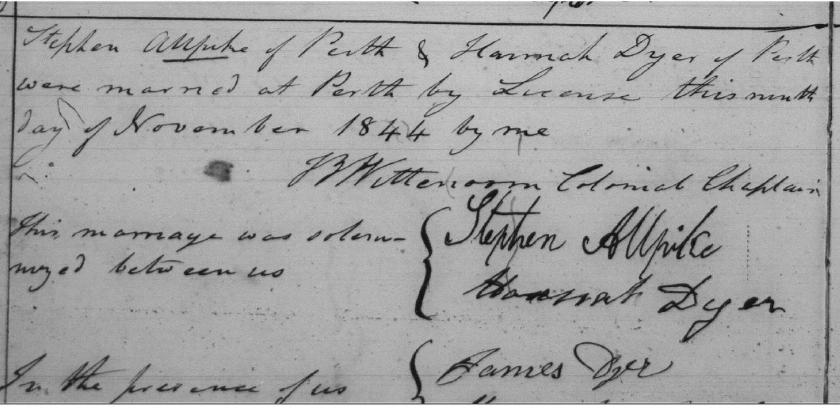 Stephen Allpike of Perth & Hannah Dyer of Perth
were married at Perth by License this ninth
day of November 1844 by me
JB Wittenoom Colonial Chaplain
This marriage was solem-
nized between us
Stephen Allpike
Hannah Dyer
In the presence of us
James Dyer